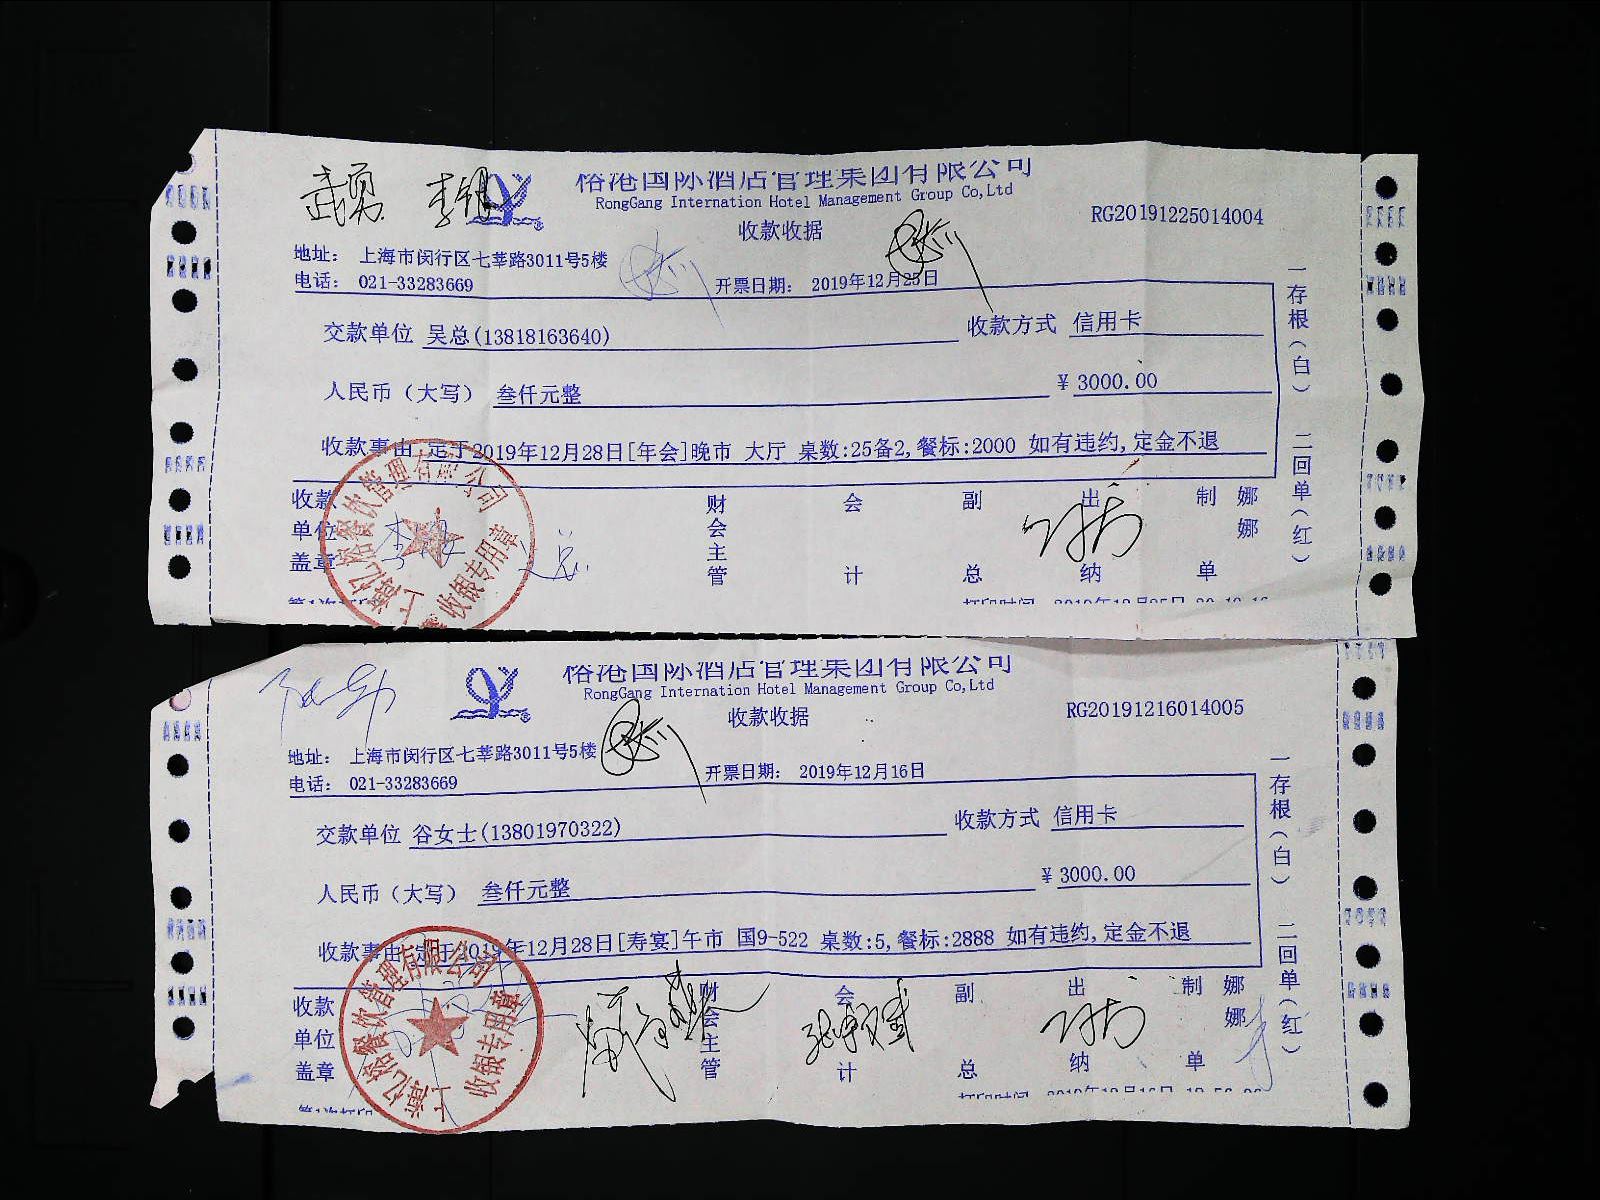 武勇 李银
裕港国际酒店管理集团有限公司
RongGang Internation Hotel Management Group Co,Ltd
收款收据
RG20191225014004
地址： 上海市闵行区七莘路3011号5楼
电话： 021-33283669
开票日期： 2019年12月25日
交款单位 吴总(13818163640)
收款方式 信用卡
人民币（大写） 叁仟元整
¥ 3000.00
收款事由 定于2019年12月28日[年会]晚市 大厅 桌数:25备2,餐标:2000 如有违约,定金不退
收款单位盖章
财会主管
会计
副总
出纳
制单
娜娜
一存根（白） 二回单（红）
上海亿裕餐饮管理有限公司
收银专用章
第1次打印
打印时间 2019年12月25日
裕港国际酒店管理集团有限公司
RongGang Internation Hotel Management Group Co,Ltd
收款收据
RG20191216014005
地址： 上海市闵行区七莘路3011号5楼
电话： 021-33283669
开票日期： 2019年12月16日
交款单位 谷女士(13801970322)
收款方式 信用卡
人民币（大写） 叁仟元整
¥ 3000.00
收款事由 定于2019年12月28日[寿宴]午市 国9-522 桌数:5,餐标:2888 如有违约,定金不退
收款单位盖章
财会主管
会计
副总
出纳
制单
娜娜
一存根（白） 二回单（红）
上海亿裕餐饮管理有限公司
收银专用章
第1次打印
打印时间 2019年12月16日